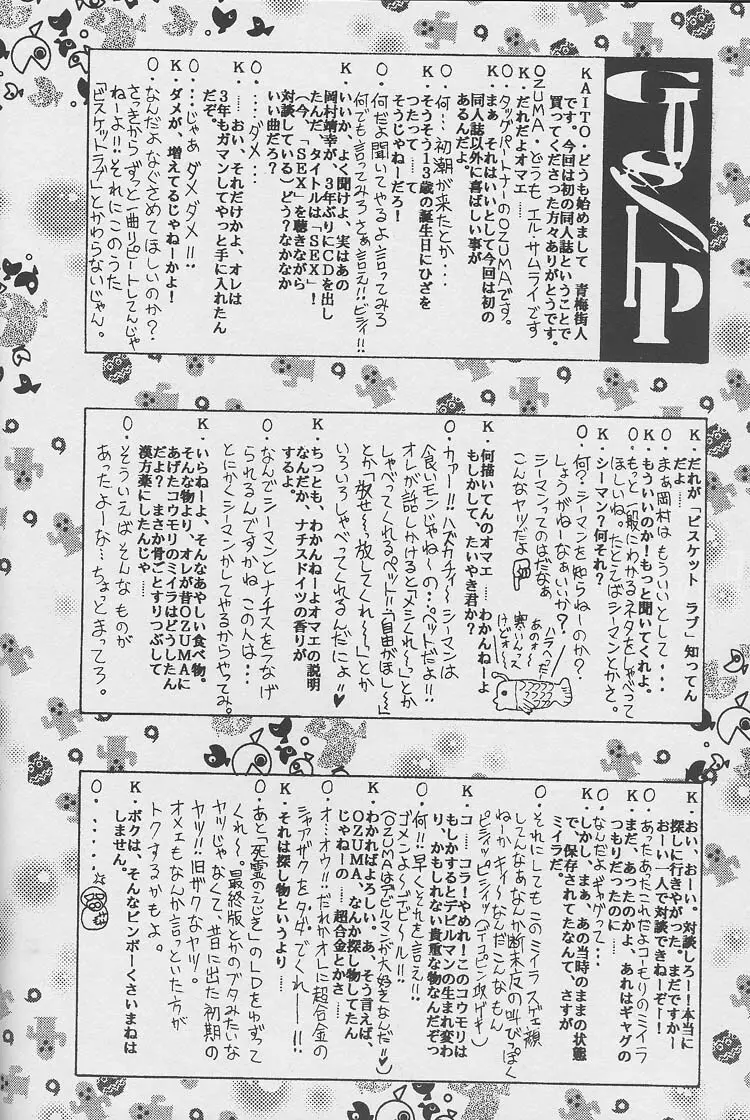 KAITO・どうも始めまして　青梅街人
です。今回は初の同人誌ということで
買ってくださった方々ありがとうです。
OZUMA・どうも エル・サムライです
K・だれだよオマエ……
O・タッグパートナーのOZUMAです。
K・まぁ、それはいいとして今回は初の
同人誌以外に喜ばしい事が
あるんだよ。
O・何…初潮が来たとか…
K・そうそう13歳の誕生日にひざを
つたって……て
そうじゃねーだろ！
O・何だよ聞いてやるよ言ってみろ
何でも言ってみろさぁ言え!!ビシィ!!
K・いいか、よく聞けよ、実はあの
岡村靖幸が、3年ぶりにCDを出し
たんだ、タイトルは「SEX」！
（今、「SEX」を聴きながら
対談している）どう？なかなか
いい曲だろ？
O・……ダメ…
K・……おい、それだけかよ、オレは
3年もガマンしてやっと手に入れたん
だぞ。
O・……じゃぁダメダメ!!
K・ダメが、増えてるじゃねーかよ！
O・なんだよなぐさめてほしいのか？
さっきからずっと一曲リピートしてんじゃ
ねーよ!!それにこのうた
「ビスケットラブ」とかわらないじゃん。
K・だれが「ビスケット　ラブ」知ってん
だよ……
O・まぁ岡村はもういいとして・・・
K・もういいのか！もっと聞いてくれよ。
O・もっと一般にわかるネタをしゃべって
ほしいね。たとえばシーマンとかさ。
K・シーマン？何それ？
O・何？シーマンを知らねーのか？
しょうがねーなぁいいか？
シーマンってのはだなぁ
こんなヤツだよ
ハラへった～
あのォ～
寒いんっス
けどォ～
K・何描いてんのオマエ……わかんねーよ
もしかして、たいやき君か？
O・カァー!!ハズカチィ～シーマンは
食いモンじゃね～の…ペットだよ!!
オレが話しかけると「メシくれ～」とか
しゃべってくれるペット!!「自由がほし～」
とか「放せ～放してくれ～」とか
いろいろしゃべってくれるんだにょ!!♥
K・ちっとも、わかんねーよオマエの説明
なんだか、ナチスドイツの香りが
するよ。
O・なんでシーマンとナチスをつなげ
られるんですかね この人は・・・
とにかくシーマンかしてやるからやってみ。
K・いらねーよ、そんなあやしい食べ物。
そんな物より、オレが昔OZUMAに
あげたコウモリのミイラはどうしたん
だよ？　まさか骨ごとすりつぶして
漢方薬にしたんじゃ……
O・そういえばそんなものが
あったよーな…ちょっとまってろ。
K・おい、おーい。対談しろー！本当に
探しに行きやがった。まだですかー
おーい一人で対談できねーぞー！
O・あったあたこれだよコーモリのミイラ
K・まだ、あったのかよ。あれはギャグの
つもりだったのに……
O・なんだよギャがって・・・
K・しかし、まぁ、あの当時のままの状態
で、保存されてたなんて、さすが
ミイラだ。
O・それにしてもこのミイラスゲェ顔
してんなぁなんか断末反の叫びっぽく
ねーかキィ～なんだこんなもん
ピシィッピシィッ（デコピン攻ゲキ）
K・コ……コラ！やめれ！このコウモリは
もしかするとデビルマンの生まれ変わ
り、かもしれない貴重な物なんだぞっ
O・何!!早くそれを言え!!
ゴメンよ～デビ～ル!!
（OZUMAはデビルマンが大好きなんだ!!♥）
K・わかればよろしい。あ、そう言えば、
OZUMA、なんか探し物してたん
じゃねーの……超合金とかさ……
O・オ…オウ!!だれかオレに超合金の
シャアザクをタダでくれー——!!
K・それは探し物というより……
O・あと「死霊のえじき」のLDをゆずって
くれ～。最終版とかのブタみたいな
ヤツじゃなくて、昔に出た初期の
ヤツ!!旧ザクなヤツ!。
オメェもなんか言っといた方が
トクするかもよ。
K・ボクは、そんなビンボーくさいまねは
しません。
O・……。